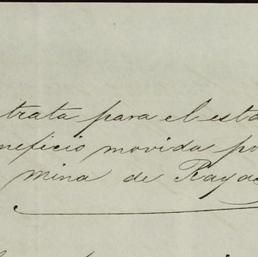 trata para el esta
neficio movida po
mina de Raya